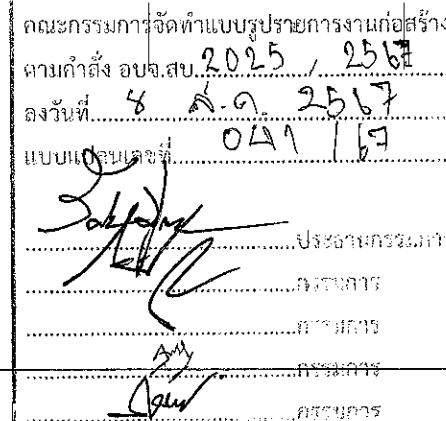 คณะกรรมการจัดทำแบบรูปรายการงานก่อสร้าง
ตามคำสั่ง อบจ.สบ. 2025 / 2567
ลงวันที่ 8 ส.ค. 2567
แบบแปลนเลขที่ 041 / 67
ประธานกรรมการ
กรรมการ
กรรมการ
กรรมการ
กรรมการ